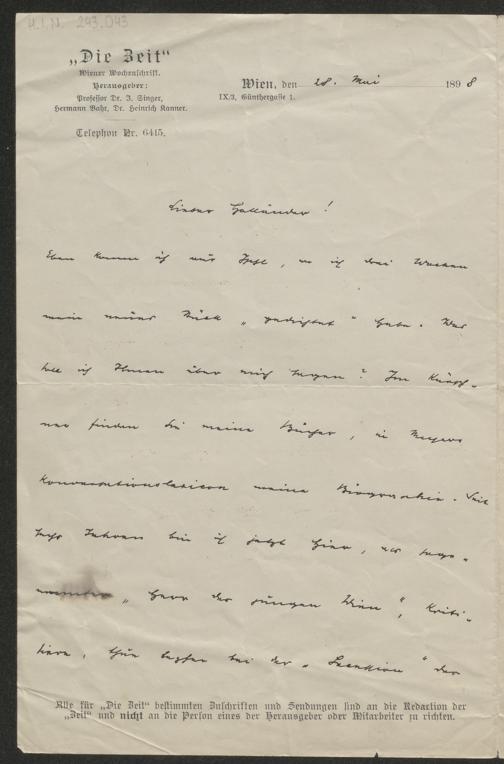 H.I.N. 243.043
„Die Zeit“
Wiener Wochenschrift.
Herausgeber:
Professor Dr. I. Singer,
Hermann Bahr, Dr. Heinrich Kanner.
Telephon Nr. 6415.
Wien, den 28. Mai 1898
IX/3, Günthergasse 1.
Lieber Holländer!
Eben komme ich aus Ischl, wo ich drei Wochen
mein neues Stück „gedichtet“ habe. Was
soll ich Ihnen über mich sagen? Im Kürsch-
ner finden Sie meine Bücher, in Meyers
Konversationslexicon meine Biographie. Seit
sechs Jahren bin ich jetzt hier, als soge-
nannter „Herr des jungen Wien“, kriti-
siere, thue besser bei der „Secession“ der
Alle für „Die Zeit“ bestimmten Zuschriften und Sendungen sind an die Redaction der
„Zeit“ und nicht an die Person eines der Herausgeber oder Mitarbeiter zu richten.